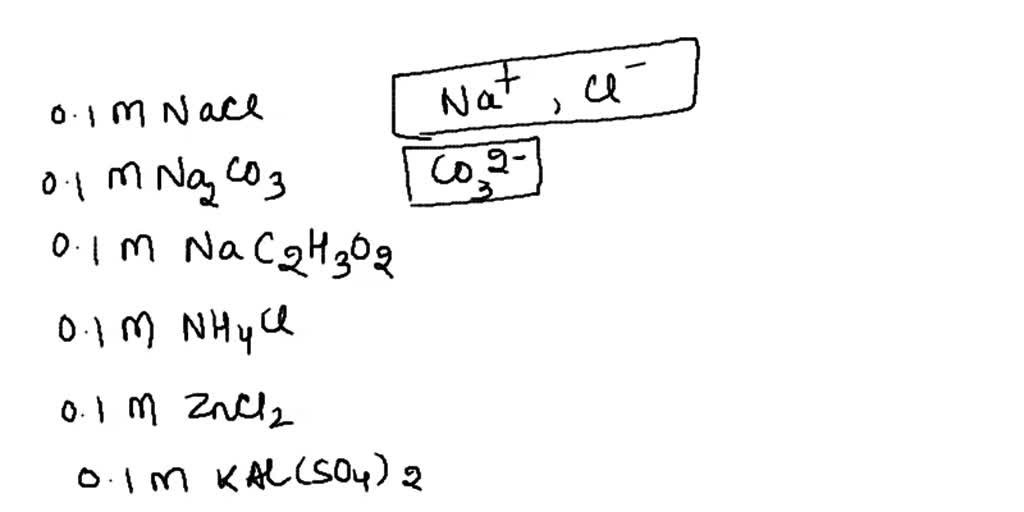 0.1 M NaCl
Na⁺, Cl⁻
0.1 M Na₂CO₃
CO₃²⁻
0.1 M NaC₂H₃O₂
0.1 M NH₄Cl
0.1 M ZnCl₂
0.1 M KAl(SO₄)₂